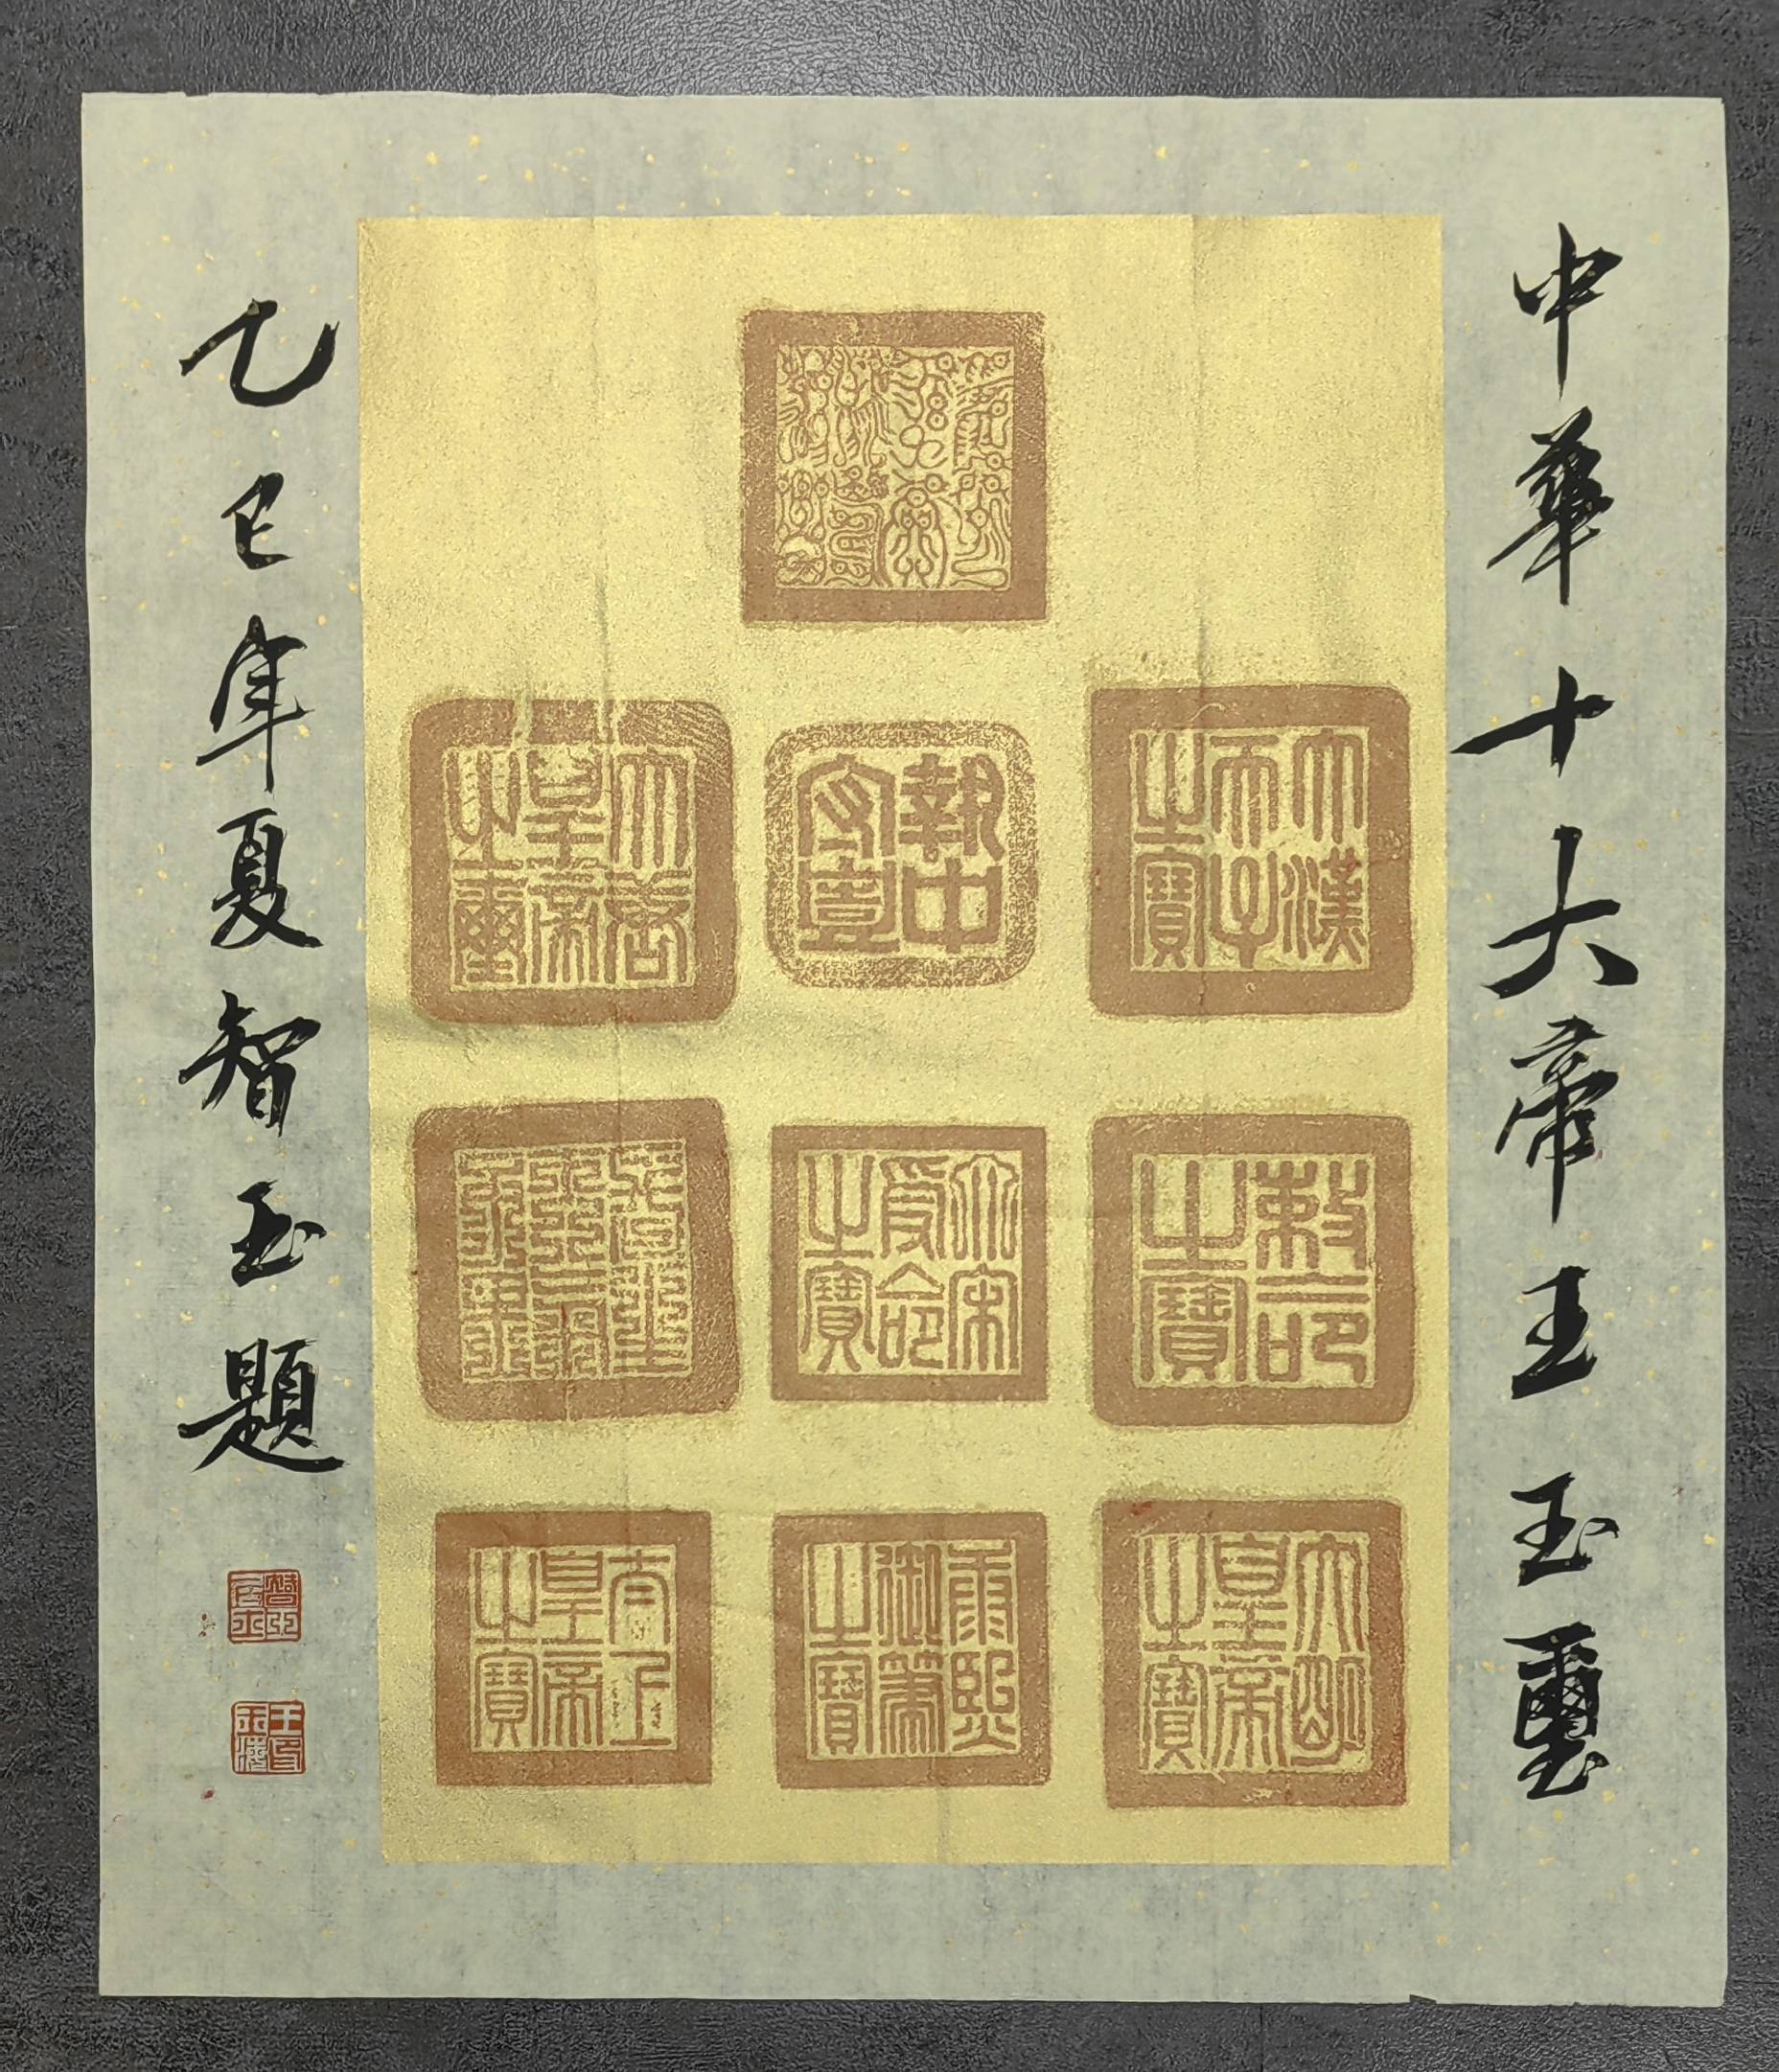 中華十大帝王玉璽
大漢天子之寶
執中守壹
大唐皇帝之璽
敕命之寶
大宋受命之寶
大明皇帝之寶
康熙御筆之寶
太上皇帝之寶
乙巳年夏智玉題